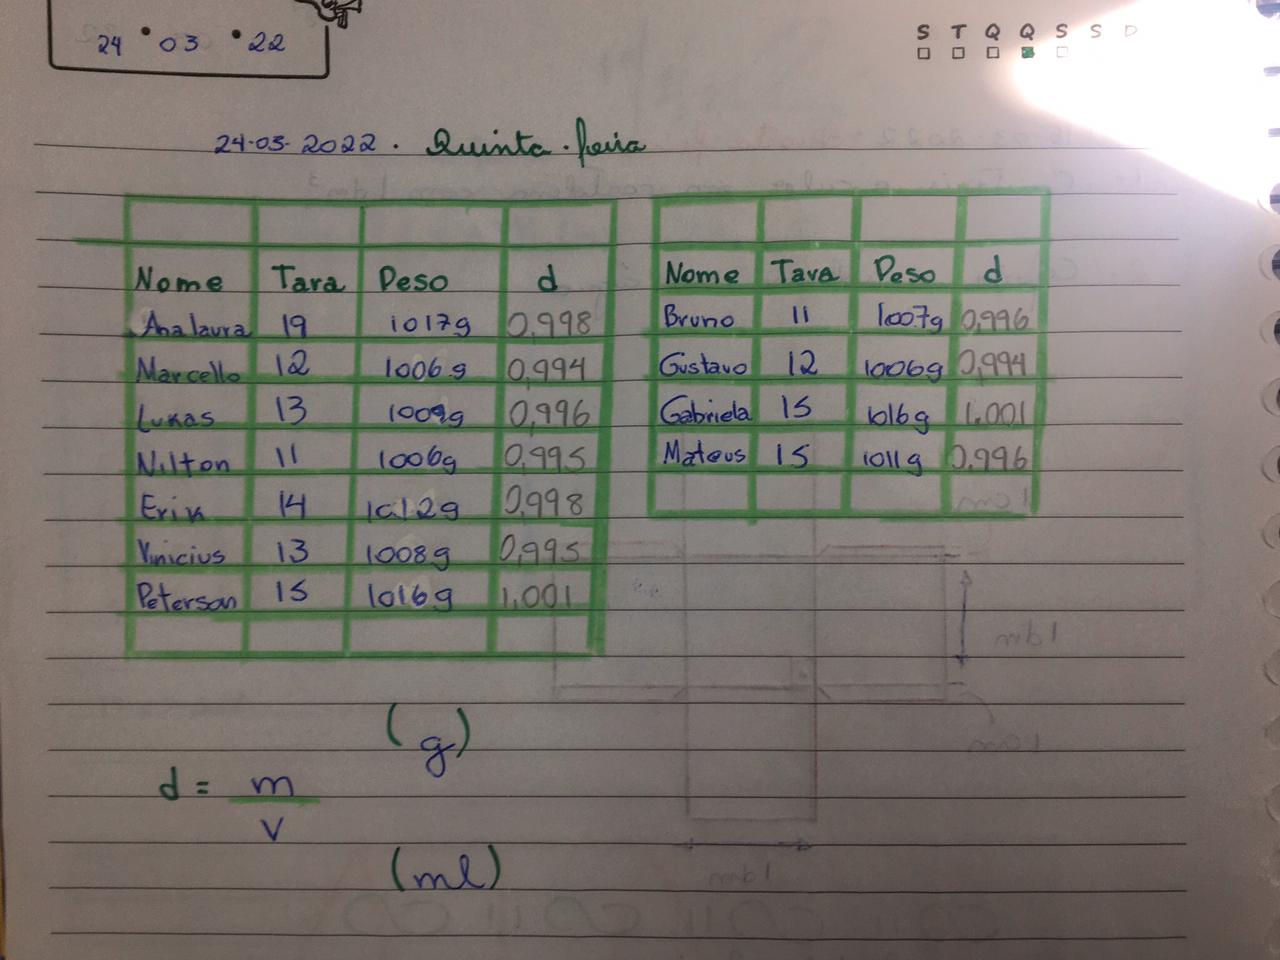 24 • 03 • 22
S T Q Q S S D
24-03-2022. Quinta-feira
Nome Tara Peso d
Analaura 19 1017g 0,998
Marcello 12 1006g 0,994
Lukas 13 1009g 0,996
Nilton 11 1006g 0,995
Erik 14 1012g 0,998
Vinicius 13 1008g 0,995
Peterson 15 1016g 1,001
Nome Tara Peso d
Bruno 11 1007g 0,996
Gustavo 12 1006g 0,994
Gabriela 15 1016g 1,001
Mateus 15 1011g 0,996
(g)
d = m
v
(ml)